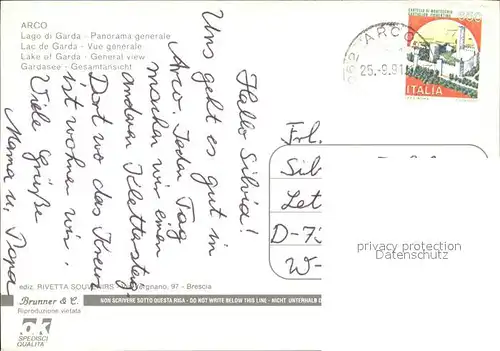 ARCO
Lago di Garda - Panorama generale
Lac de Garda - Vue generale
Lake of Garda - General view
Gardasee - Gesamtansicht
Hallo Silvia!
Uns geht es gut in
Arco. Jeden Tag
machen wir einen
anderen Klettersteig,
Dort wo das Kreuz
ist wohnen wir.
Viele Grüße
Mama u. Papa
ARCO
25.-9.91
CASTELLO DI MONTECCHIO
CASTIGLION FIORENTINO
ITALIA
Frl.
Sil
Let
D-7
W-
privacy protection
www.ansichtskarten-center.de
ediz. RIVETTA SOUVENIRS - 97 - Brescia
Brunner & C.
Riproduzione vietata
NON SCRIVERE SOTTO QUESTA RIGA - DO NOT WRITE BELOW THIS LINE - NICHT UNTERHALB D
OK
SPEDISCI
QUALITÀ